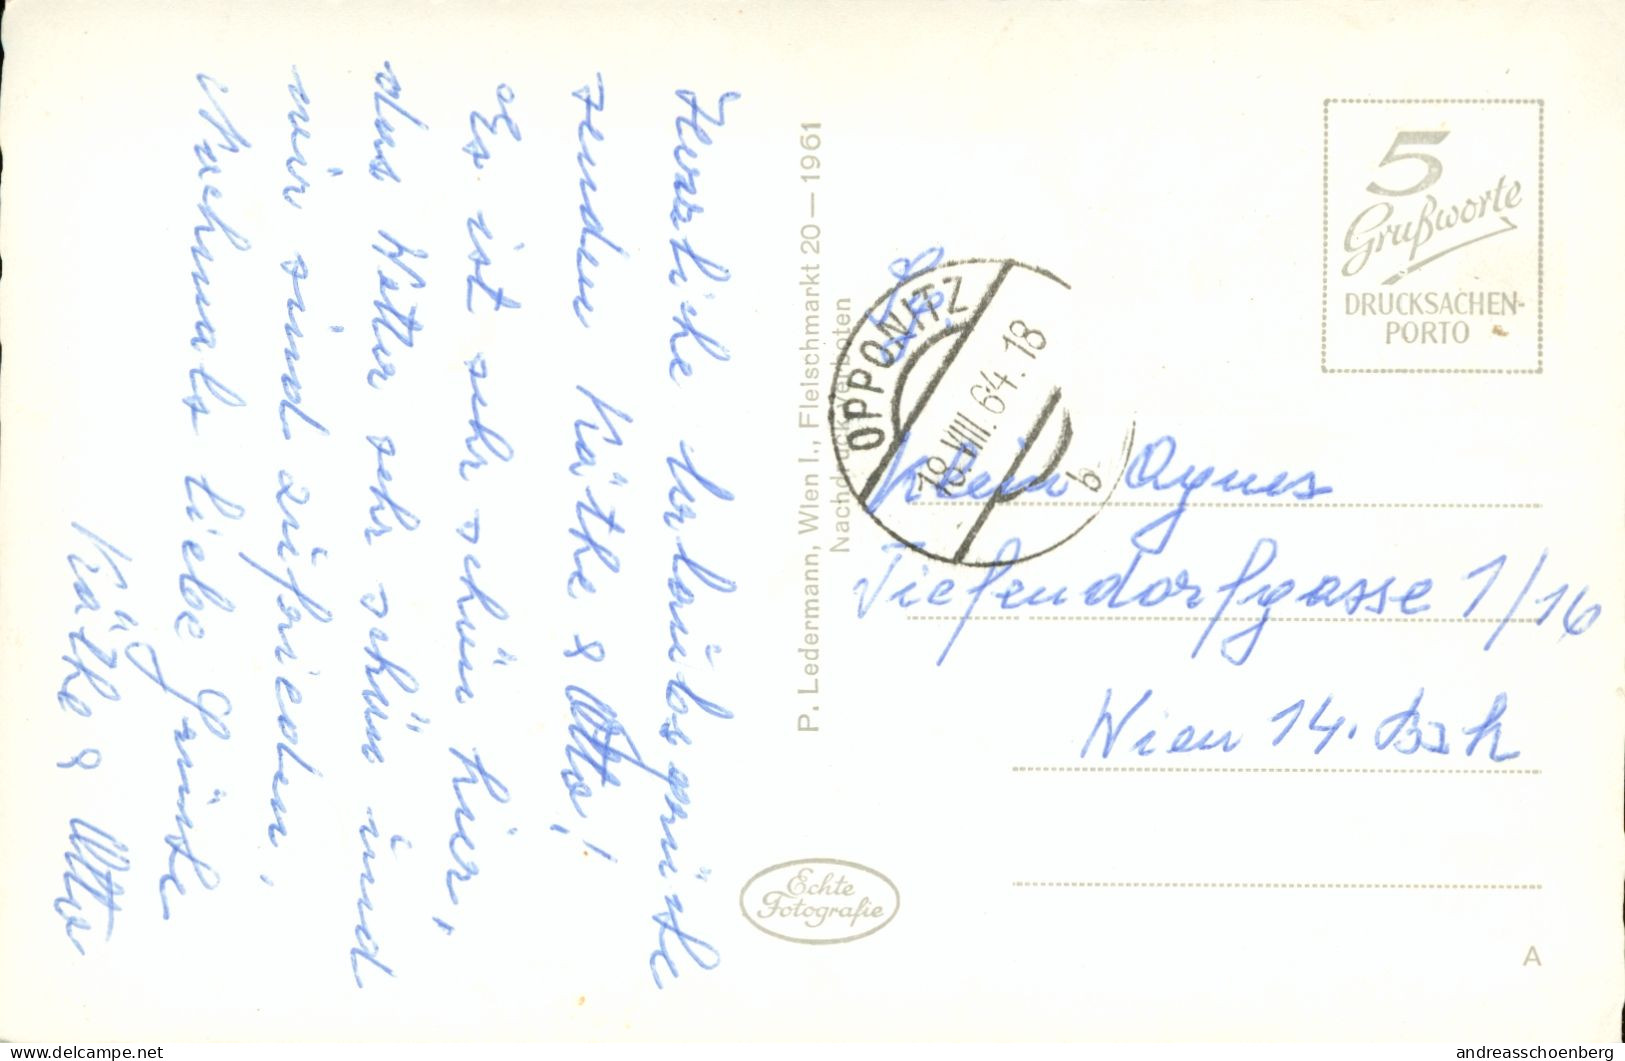 Herzliche Urlaubsgrüße
senden Käthe & Otto!
Es ist sehr schön hier,
das Wetter sehr schön und
wir sind zufrieden,
Nochmals liebe Grüße
Käthe & Otto
P. Ledermann, Wien I., Fleischmarkt 20—1961
Nachdruck verboten
5
Grußworte
DRUCKSACHEN-
PORTO
OPPONITZ
18.VIII.64.18
b
Agnes
Tiefendorfgasse 1/16
Wien 14. Bzk
Echte
Fotografie
A
andreasschoenberg